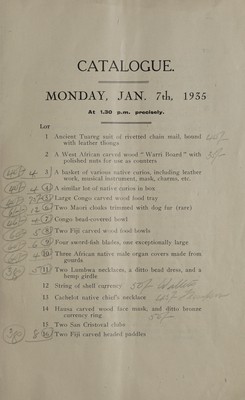 CATALOGUE.
MONDAY, JAN. 7th, 1935
At 1.30 p.m. precisely.
Lot
1 Ancient Tuareg suit of rivetted chain mail, bound
with leather thongs
2 A West African carved wood "Warri Board" with
polished nuts for use as counters
3 A basket of various native curios, including leather
work, musical instrument, mask, charms, etc.
4 A similar lot of native curios in box
5 Large Congo carved wood food tray
6 Two Maori cloaks trimmed with dog fur (rare)
7 Congo bead-covered bowl
8 Two Fiji carved wood food bowls
9 Four sword-fish blades, one exceptionally large
10 Three African native male organ covers made from
gourds
11 Two Lumbwa necklaces, a ditto head dress, and a
hemp girdle
12 String of shell currency
13 Cachelot native chief's necklace
14 Hausa carved wood face mask, and ditto bronze
currency ring
15 Two San Cristoval clubs
16 Two Fiji carved headed paddles